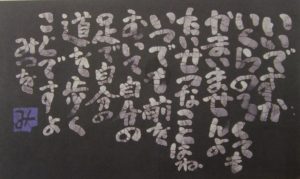 いいですか
いくらのろくても
かまいませんよ
たいせつなことはね
いつでも前を
むいて自分の
足で自分の
道を歩く
ことですよ
みつを
み